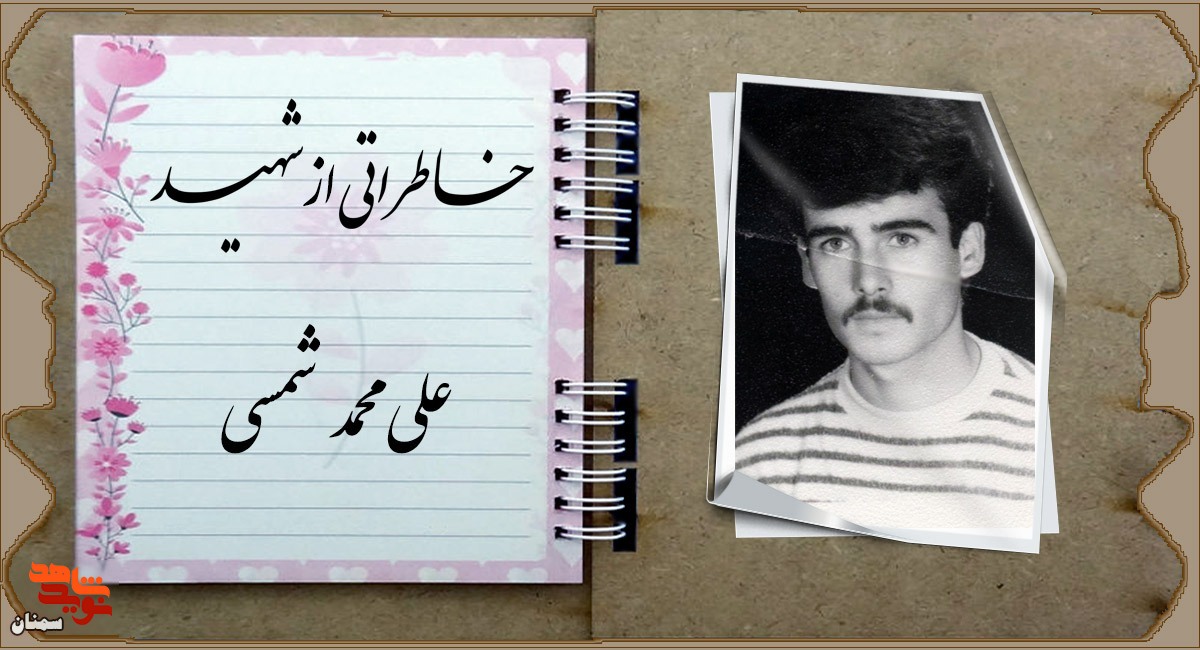 خاطراتی از شهید
علی محمد شمسی
نوید شاهد
سمنان